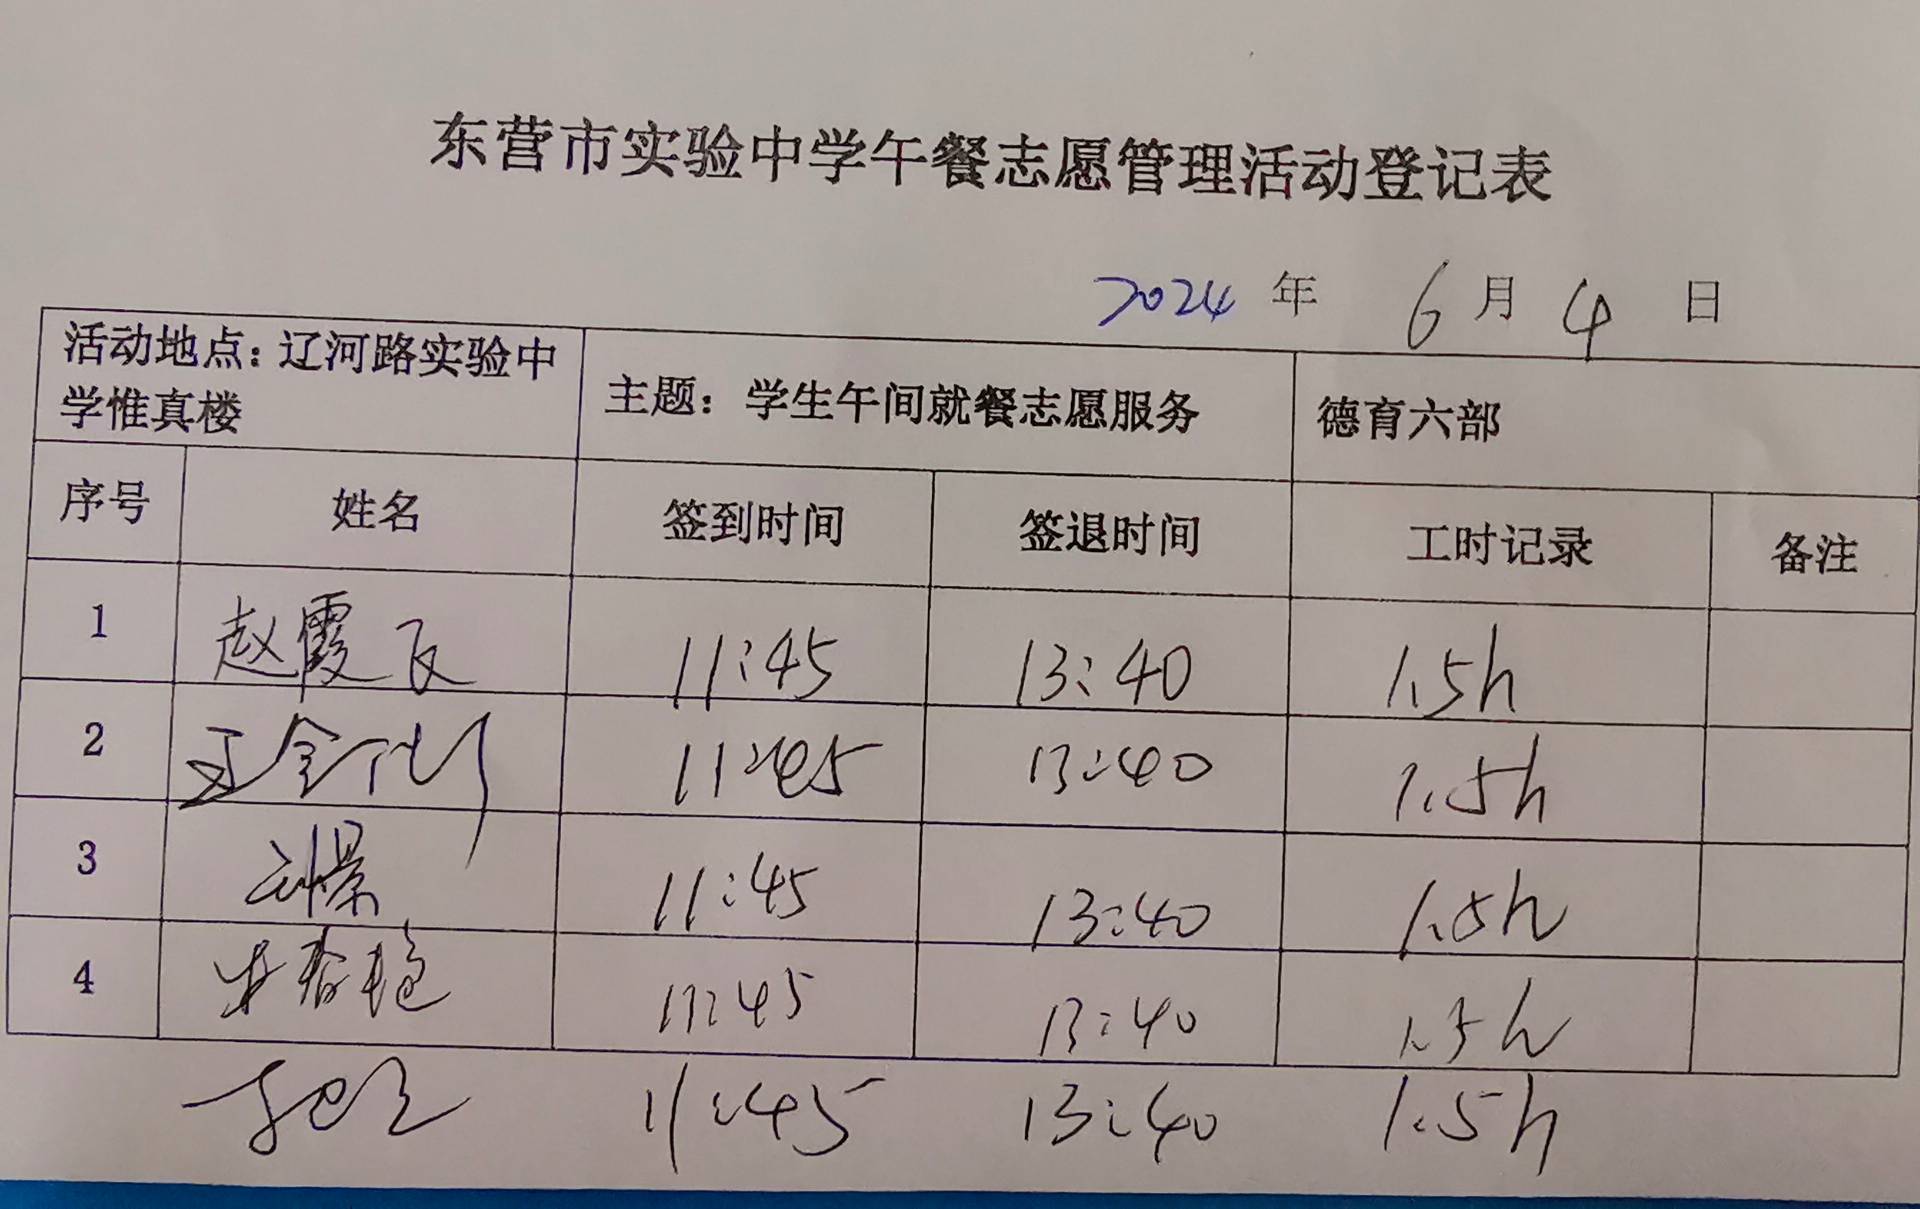 东营市实验中学午餐志愿管理活动登记表
2024 年 6 月 4 日
活动地点：辽河路实验中 主题：学生午间就餐志愿服务 德育六部
学惟真楼
序号 姓名 签到时间 签退时间 工时记录 备注
1 赵霞飞 11:45 13:40 1.5h
2 11:45 13:40 1.5h
3 刘景 11:45 13:40 1.5h
4 11:45 13:40 1.5h
11:45 13:40 1.5h